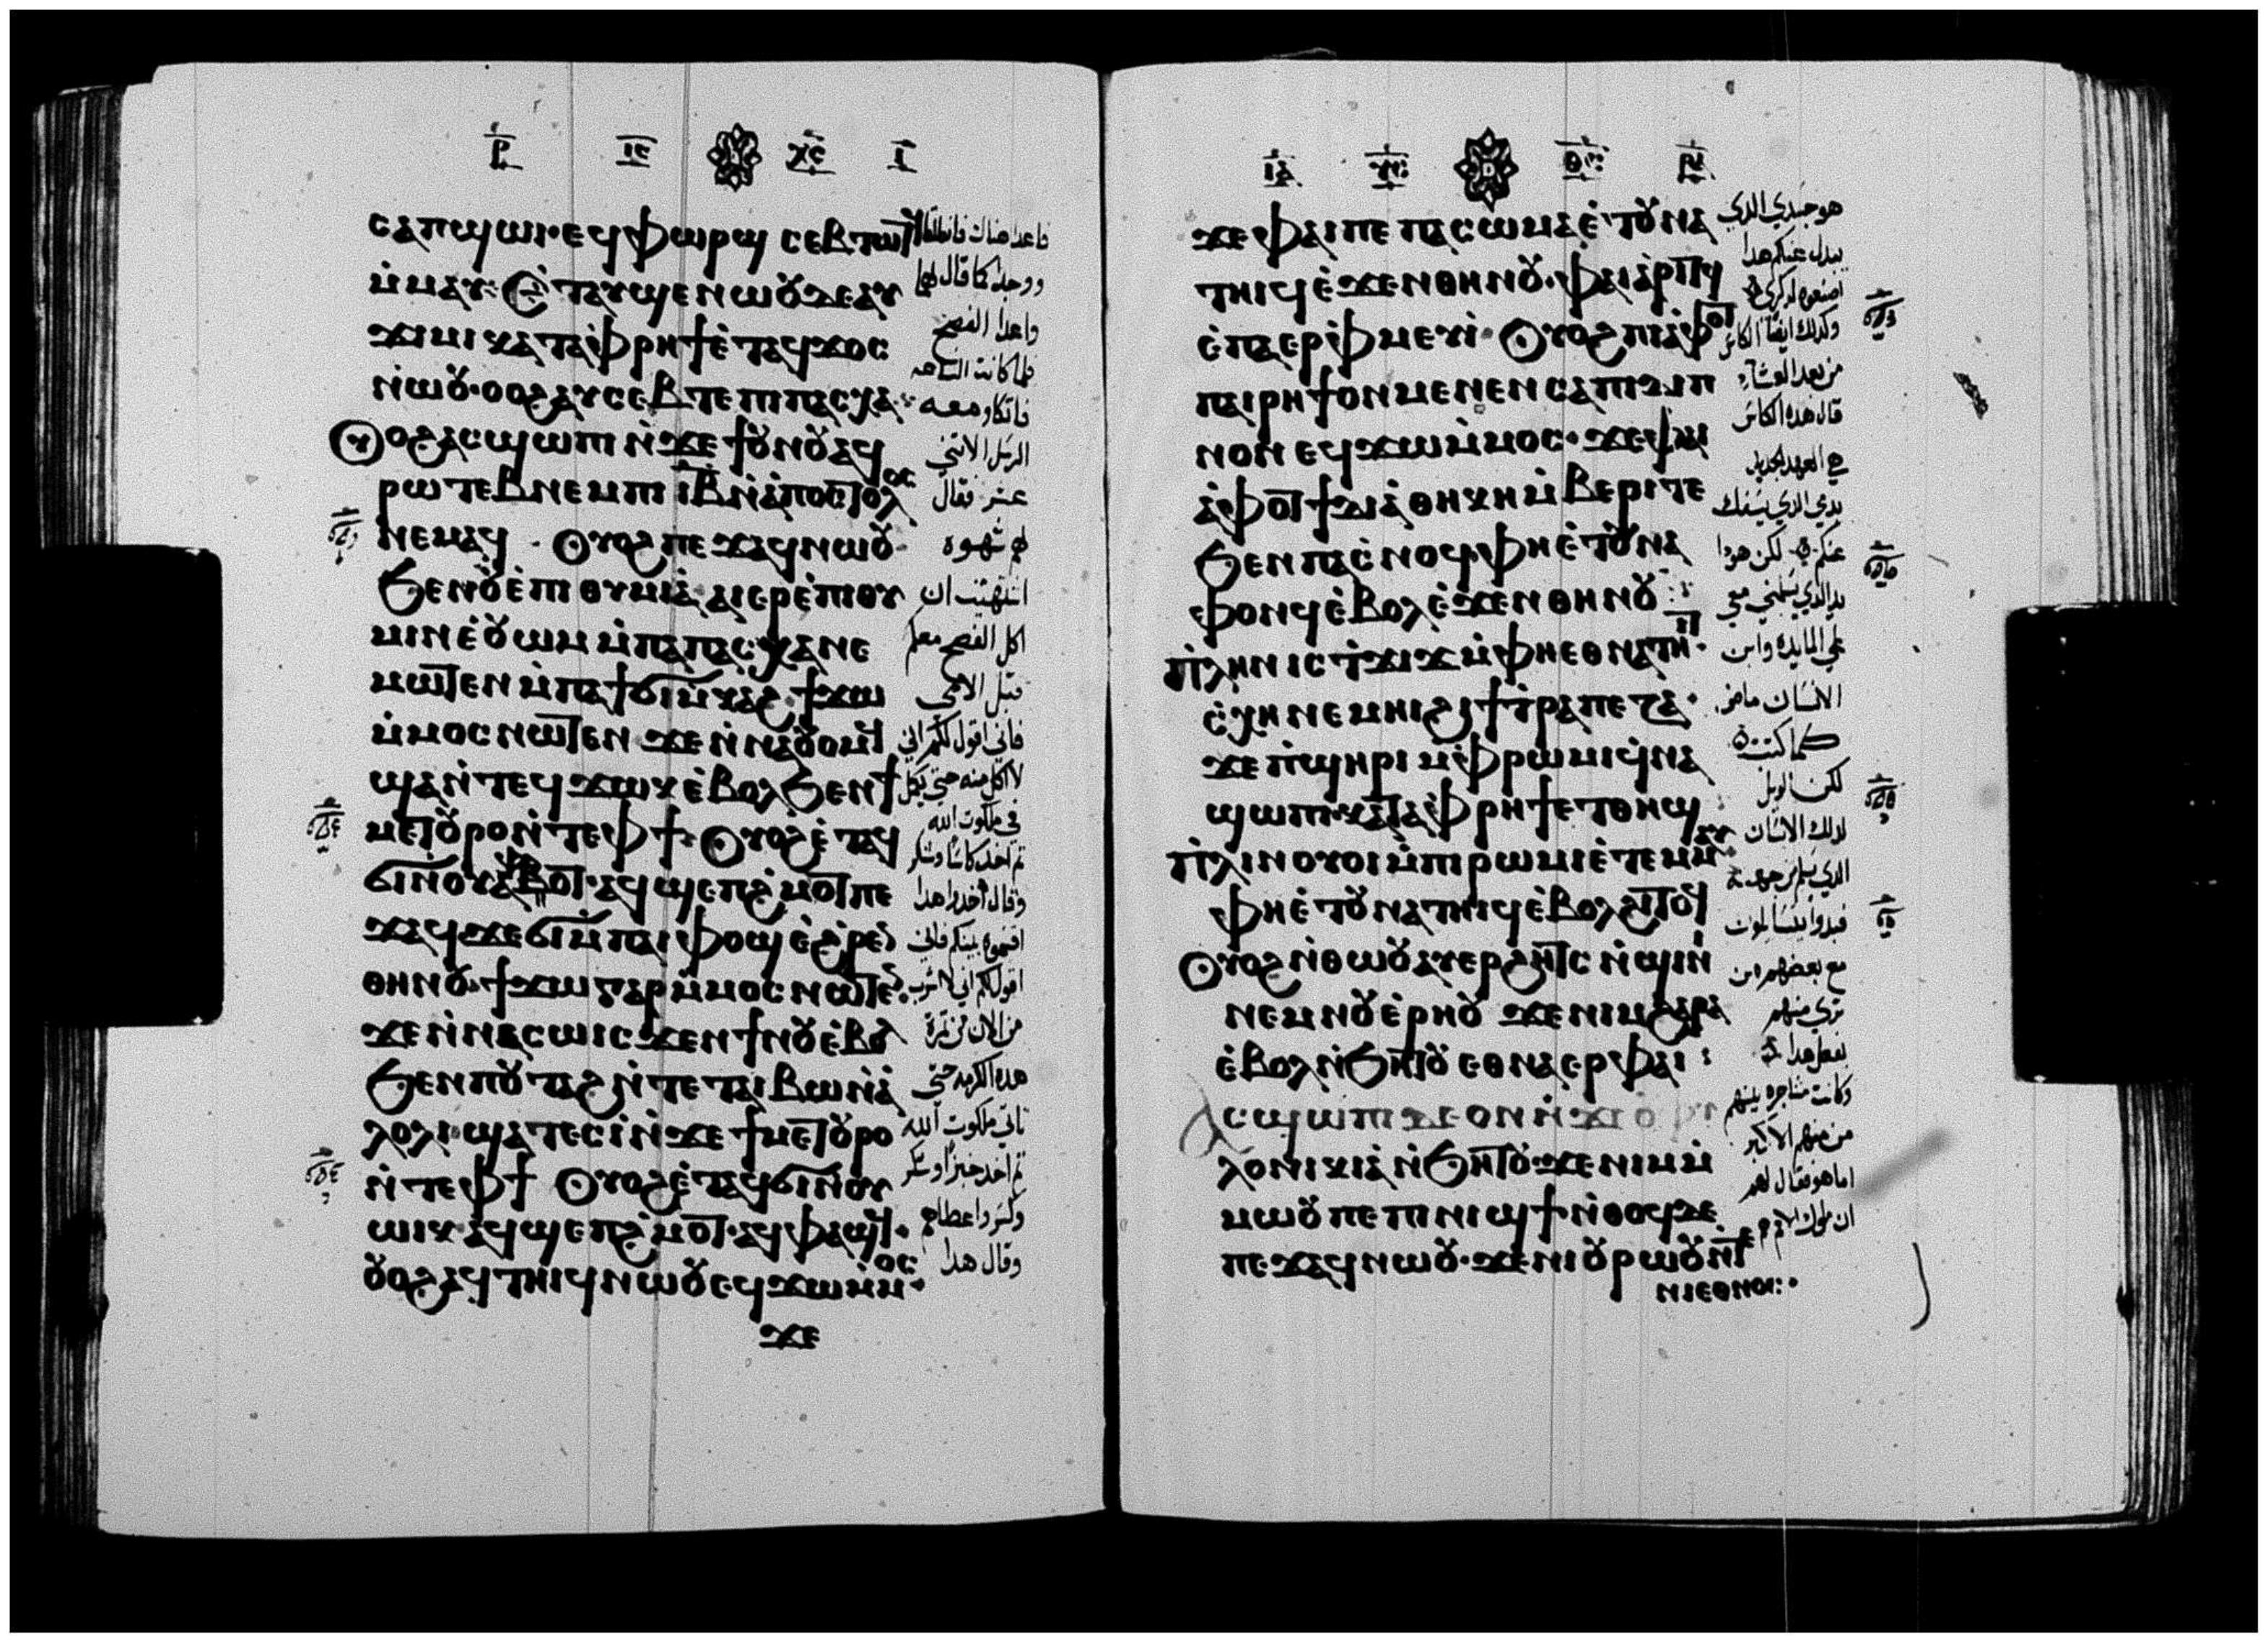 ⲣ̅ ⲓ̅ⲥ̅ ⲭ̅ⲥ̅ ⲓ̅
ⲥⲁⲡϣⲱⲓ· ⲉϥⲫⲱⲣϣ ⲥⲉⲃⲧⲱⲧϥ
ⲙ̇ⲙⲁⲩ: Ⲉ̇ⲧⲁⲩϣⲉⲛⲱⲟⲩ ⲇⲉ ⲁⲩ
ϫⲓⲙⲓ ⲕⲁⲧⲁ ⲫ̇ⲣⲏϯ ⲉ̇ⲧⲁϥϫⲟⲥ
ⲛ̇ⲱⲟⲩ· ⲟⲟϩ ⲁⲩⲥⲉⲃⲧⲉ ⲡⲓⲡⲁⲥⲭⲁ:
Ⲟⲩⲟϩ ⲁⲥϣⲱⲡⲓ ⲛ̇ϫⲉ ϯⲟⲩⲛⲟⲩ ⲁϥ
ⲣⲱⲧⲉⲃ ⲛⲉⲙ ⲡⲓ ⲓ̅ⲃ̅ ⲛ̇ⲁ̇ⲡⲟⲥⲧⲟⲗⲟⲥ
ⲛⲉⲙⲁϥ · Ⲟⲩⲟϩ ⲡⲉϫⲁϥ ⲛⲱⲟⲩ
Ϧⲉⲛ ⲟⲩⲉ̇ⲡⲓⲑⲩⲙⲓⲁ ⲁⲓⲉⲣⲉ̇ⲡⲓⲑⲩ
ⲙⲓⲛ ⲉ̇ⲟⲩⲱⲙ ⲙ̇ⲡⲁⲡⲁⲥⲭⲁ ⲛⲉ
ⲙⲱⲧⲉⲛ ⲙ̇ⲡⲁϯϭⲓⲙ̇ⲕⲁϩ· ϯϫⲱ
ⲙ̇ⲙⲟⲥ ⲛⲱⲧⲉⲛ ϫⲉ ⲛ̇ⲛⲁⲟⲩⲟⲙϥ
ϣⲁⲛ̇ⲧⲉϥϫⲱⲕ ⲉ̇ⲃⲟⲗ ϧⲉⲛ ϯ
ⲙⲉⲧⲟⲩⲣⲟ ⲛ̇ⲧⲉ ⲫϯ· Ⲟⲩⲟϩ ⲉ̇ⲧⲁϥ
ϭⲓ ⲛ̇ⲟⲩⲁ̇ⲫⲟⲧ· ⲁϥϣⲉⲡϩ̇ⲙⲟⲧ ⲡⲉ
ϫⲁϥ ϫⲉ ϭⲓ ⲙ̇ⲫⲁⲓ ⲫⲟϣ ⲉ̇ϩ̇ⲣⲉⲛ
ⲑⲏⲛⲟⲩ· ϯϫⲱ ⲅⲁⲣ ⲙ̇ⲙⲟⲥ ⲛⲱⲧⲉⲛ·
ϫⲉ ⲛ̇ⲛⲁⲥⲱ ⲓⲥϫⲉⲛ ϯⲛⲟⲩ ⲉ̇ⲃⲟⲗ
Ϧⲉⲛ ⲡⲟⲩⲧⲁϩ ⲛ̇ⲧⲉ ⲧⲁⲓⲃⲱ ⲛ̇ⲁ̇
ⲗⲟⲗⲓ· ϣⲁⲧⲉⲥⲓ̇ ⲛ̇ϫⲉ ϯⲙⲉⲧⲟⲩⲣⲟ
ⲛ̇ⲧⲉ ⲫϯ Ⲟⲩⲟϩ ⲉ̇ⲧⲁϥϭⲓ ⲛ̇ⲟⲩ
ⲱⲓⲕ· ⲁϥϣⲉⲡϩ̇ⲙⲟⲧ· ⲁϥⲫⲁϣϥ·
ⲟⲩⲟϩ ⲁϥⲧⲏⲓϥ ⲛⲱⲟⲩ ⲉϥϫⲱ ⲙ̇ⲙⲟⲥ·
ϫⲉ
فاعدا هناك فانطلقا
ووجدا كما قال لهما
واعدا الفصح
فلما كانت الساعه
فاتكا ومعه
الرسل الاثنى
عشر فقال
لهم شهوه
اشتهيت ان
اكل الفصح معكم
قبل الامى
فانى اقول لكم انى
لا اكل منه حتى يكمل
فى ملكوت الله
ثم اخد كاسًا وشكر
وقال اخدوا هدا
اقسموه بينكم فانى
اقول لكم انى لا اشرب
من الان من ثمرة
هده الكرمه حتى
تاتى ملكوت الله
ثم اخد خبزًا وشكر
وكسر واعطاهم
وقال هدا
ⲓ̅ⲁ̅ ⲩ̅ⲥ̅: ⲑ̅ⲥ̅: ⲣ̅ⲁ̅
ϫⲉ ⲫⲁⲓ ⲡⲉ ⲡⲁⲥⲱⲙⲁ ⲉ̇ⲧⲟⲩⲛⲁ
ⲧⲏⲓϥ ⲉ̇ϫⲉⲛ ⲑⲏⲛⲟⲩ· ⲫⲁⲓ ⲁ̇ⲣⲓⲧϥ
ⲉ̇ⲡⲁⲉⲣⲫ̇ⲙⲉⲩⲓ̇· Ⲟⲩⲟϩ ⲡⲓⲁ̇ⲫⲟⲧ
ⲡⲁⲓⲣⲏϯ ⲟⲛ ⲙⲉⲛⲉⲛⲥⲁ ⲡⲓⲇⲓⲡ
ⲛⲟⲛ ⲉϥϫⲱ ⲙ̇ⲙⲟⲥ· ϫⲉ ⲫⲁⲓ
ⲁ̇ⲫⲟⲧ ϯⲇⲓⲁ̇ⲑⲏⲕⲏ ⲙ̇ⲃⲉⲣⲓ ⲧⲉ
Ϧⲉⲛ ⲡⲁⲥ̇ⲛⲟϥ ⲫⲏ ⲉ̇ⲧⲟⲩⲛⲁ
ⲫⲟⲛϥ ⲉ̇ⲃⲟⲗ ⲉ̇ϫⲉⲛ ⲑⲏⲛⲟⲩ :
Ⲡⲗⲏⲛ ⲓⲥ ⲧ̇ϫⲓϫ ⲙ̇ⲫⲏ ⲉⲑⲛⲁⲧⲏⲓⲧ·
ⲥ̇ⲭⲏ ⲛⲉⲙⲏⲓ ϩⲓ ϯⲧ̇ⲣⲁⲡⲉⲍⲁ·
ϫⲉ ⲡ̇ϣⲏⲣⲓ ⲙ̇ⲫⲣⲱⲙⲓ ϥ̇ⲛⲁ
ϣⲱⲡⲓ ⲕⲁⲧⲁ ⲫ̇ⲣⲏϯ ⲉⲧⲑⲏϣ :
Ⲡⲗⲓⲛ ⲟⲩⲟⲓ ⲙ̇ⲡⲓⲣⲱⲙⲓ ⲉ̇ⲧⲉⲙⲙⲁⲩ·
ⲫⲏ ⲉ̇ⲧⲟⲩⲛⲁⲧⲏⲓϥ ⲉ̇ⲃⲟⲗ ϩⲓⲧⲟⲧϥ
Ⲟⲩⲟϩ ⲛ̇ⲑⲱⲟⲩ ⲁⲩⲉⲣϩⲏⲧⲥ ⲛ̇ϣⲓⲛⲓ
ⲛⲉⲙ ⲛⲟⲩⲉ̇ⲣⲏⲟⲩ ϫⲉ ⲛⲓⲙ ϩⲁⲣⲁ
ⲉ̇ⲃⲟⲗ ⲛ̇ϧⲏⲧⲟⲩ ⲉⲑⲛⲁⲉⲣ ⲫⲁⲓ :
Ⲁⲥϣⲱⲡⲓ ⲇⲉ ⲟⲛ ⲛ̇ϫⲉ ⲟⲩⲫⲓ
ⲗⲟⲛⲓⲕⲓⲁ̇ ⲛ̇ϧⲏⲧⲟⲩ ϫⲉ ⲛⲓⲙ ⲙ̇
ⲙⲱⲟⲩ ⲡⲉ ⲡⲓⲛⲓϣϯ· ⲛ̇ⲑⲟϥ ⲇⲉ
ⲡⲉϫⲁϥ ⲛⲱⲟⲩ· ϫⲉ ⲛⲓⲟⲩⲣⲱⲟⲩ ⲛ̇ⲧⲉ
ⲛⲓⲉⲑⲛⲟⲥ:·
هو جسدى الدى
يبدل عنكم هدا
اصنعوه لدكرى
وكدلك ايضًا الكاس
من بعد العشاء
قال هده الكاس
هى العهد الجديد
بدمى الدى يسفك
عنكم لكن هودا
يد الدى يسلمنى معى
على المايده وابن
الانسان ماض
كما كتب
لكن الويل
لدلك الانسان
الدى يسلم من جهته
فبدوا يتسالون
مع بعضهم من
ترى منهم
يفعل هدا
وكانت مشاجره بينهم
من منهم الاكبر
اما هو فقال لهم
ان ملوك الامم